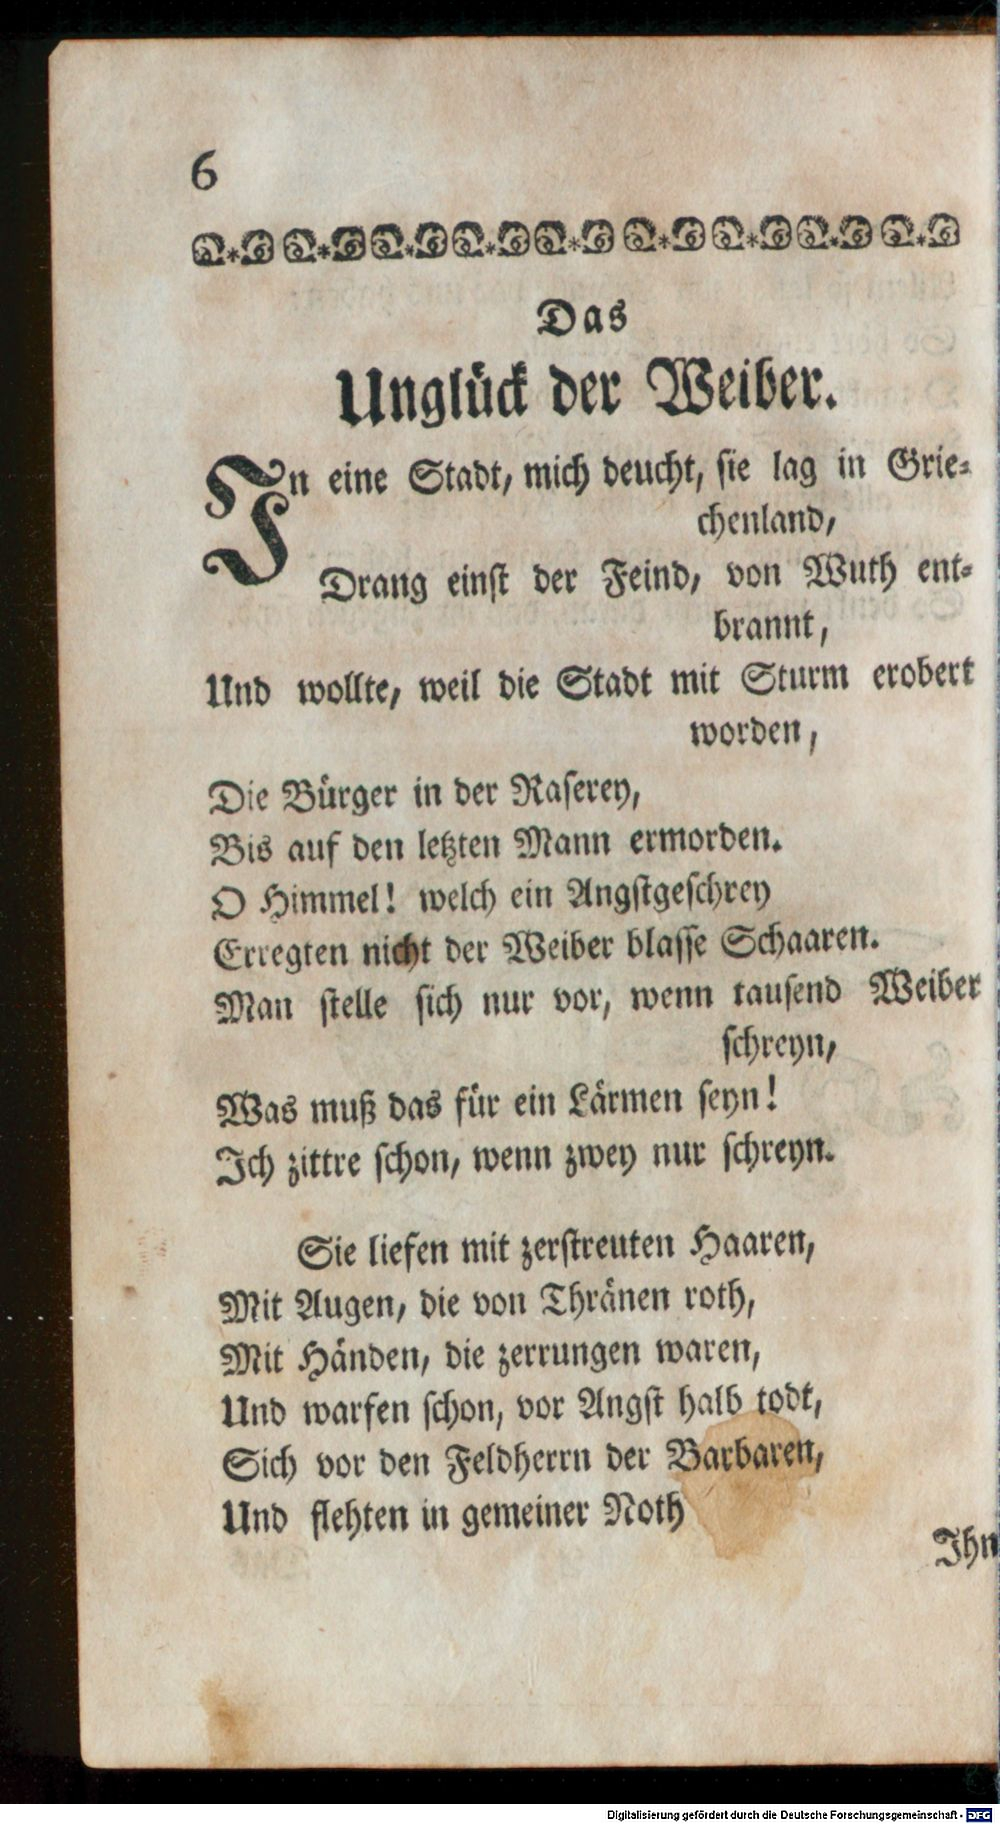 6
Das
Unglück der Weiber.
In eine Stadt, mich deucht, sie lag in Grie-
chenland,
Drang einst der Feind, von Wuth ent-
brannt,
Und wollte, weil die Stadt mit Sturm erobert
worden,
Die Bürger in der Raserey,
Bis auf den letzten Mann ermorden.
O Himmel! welch ein Angstgeschrey
Erregten nicht der Weiber blasse Schaaren.
Man stelle sich nur vor, wenn tausend Weiber
schreyn,
Was muß das für ein Lärmen seyn!
Ich zittre schon, wenn zwey nur schreyn.
Sie liefen mit zerstreuten Haaren,
Mit Augen, die von Thränen roth,
Mit Händen, die zerrungen waren,
Und warfen schon, vor Angst halb todt,
Sich vor den Feldherrn der Barbaren,
Und flehten in gemeiner Noth
Ihn
Digitalisierung gefördert durch die Deutsche Forschungsgemeinschaft - DFG